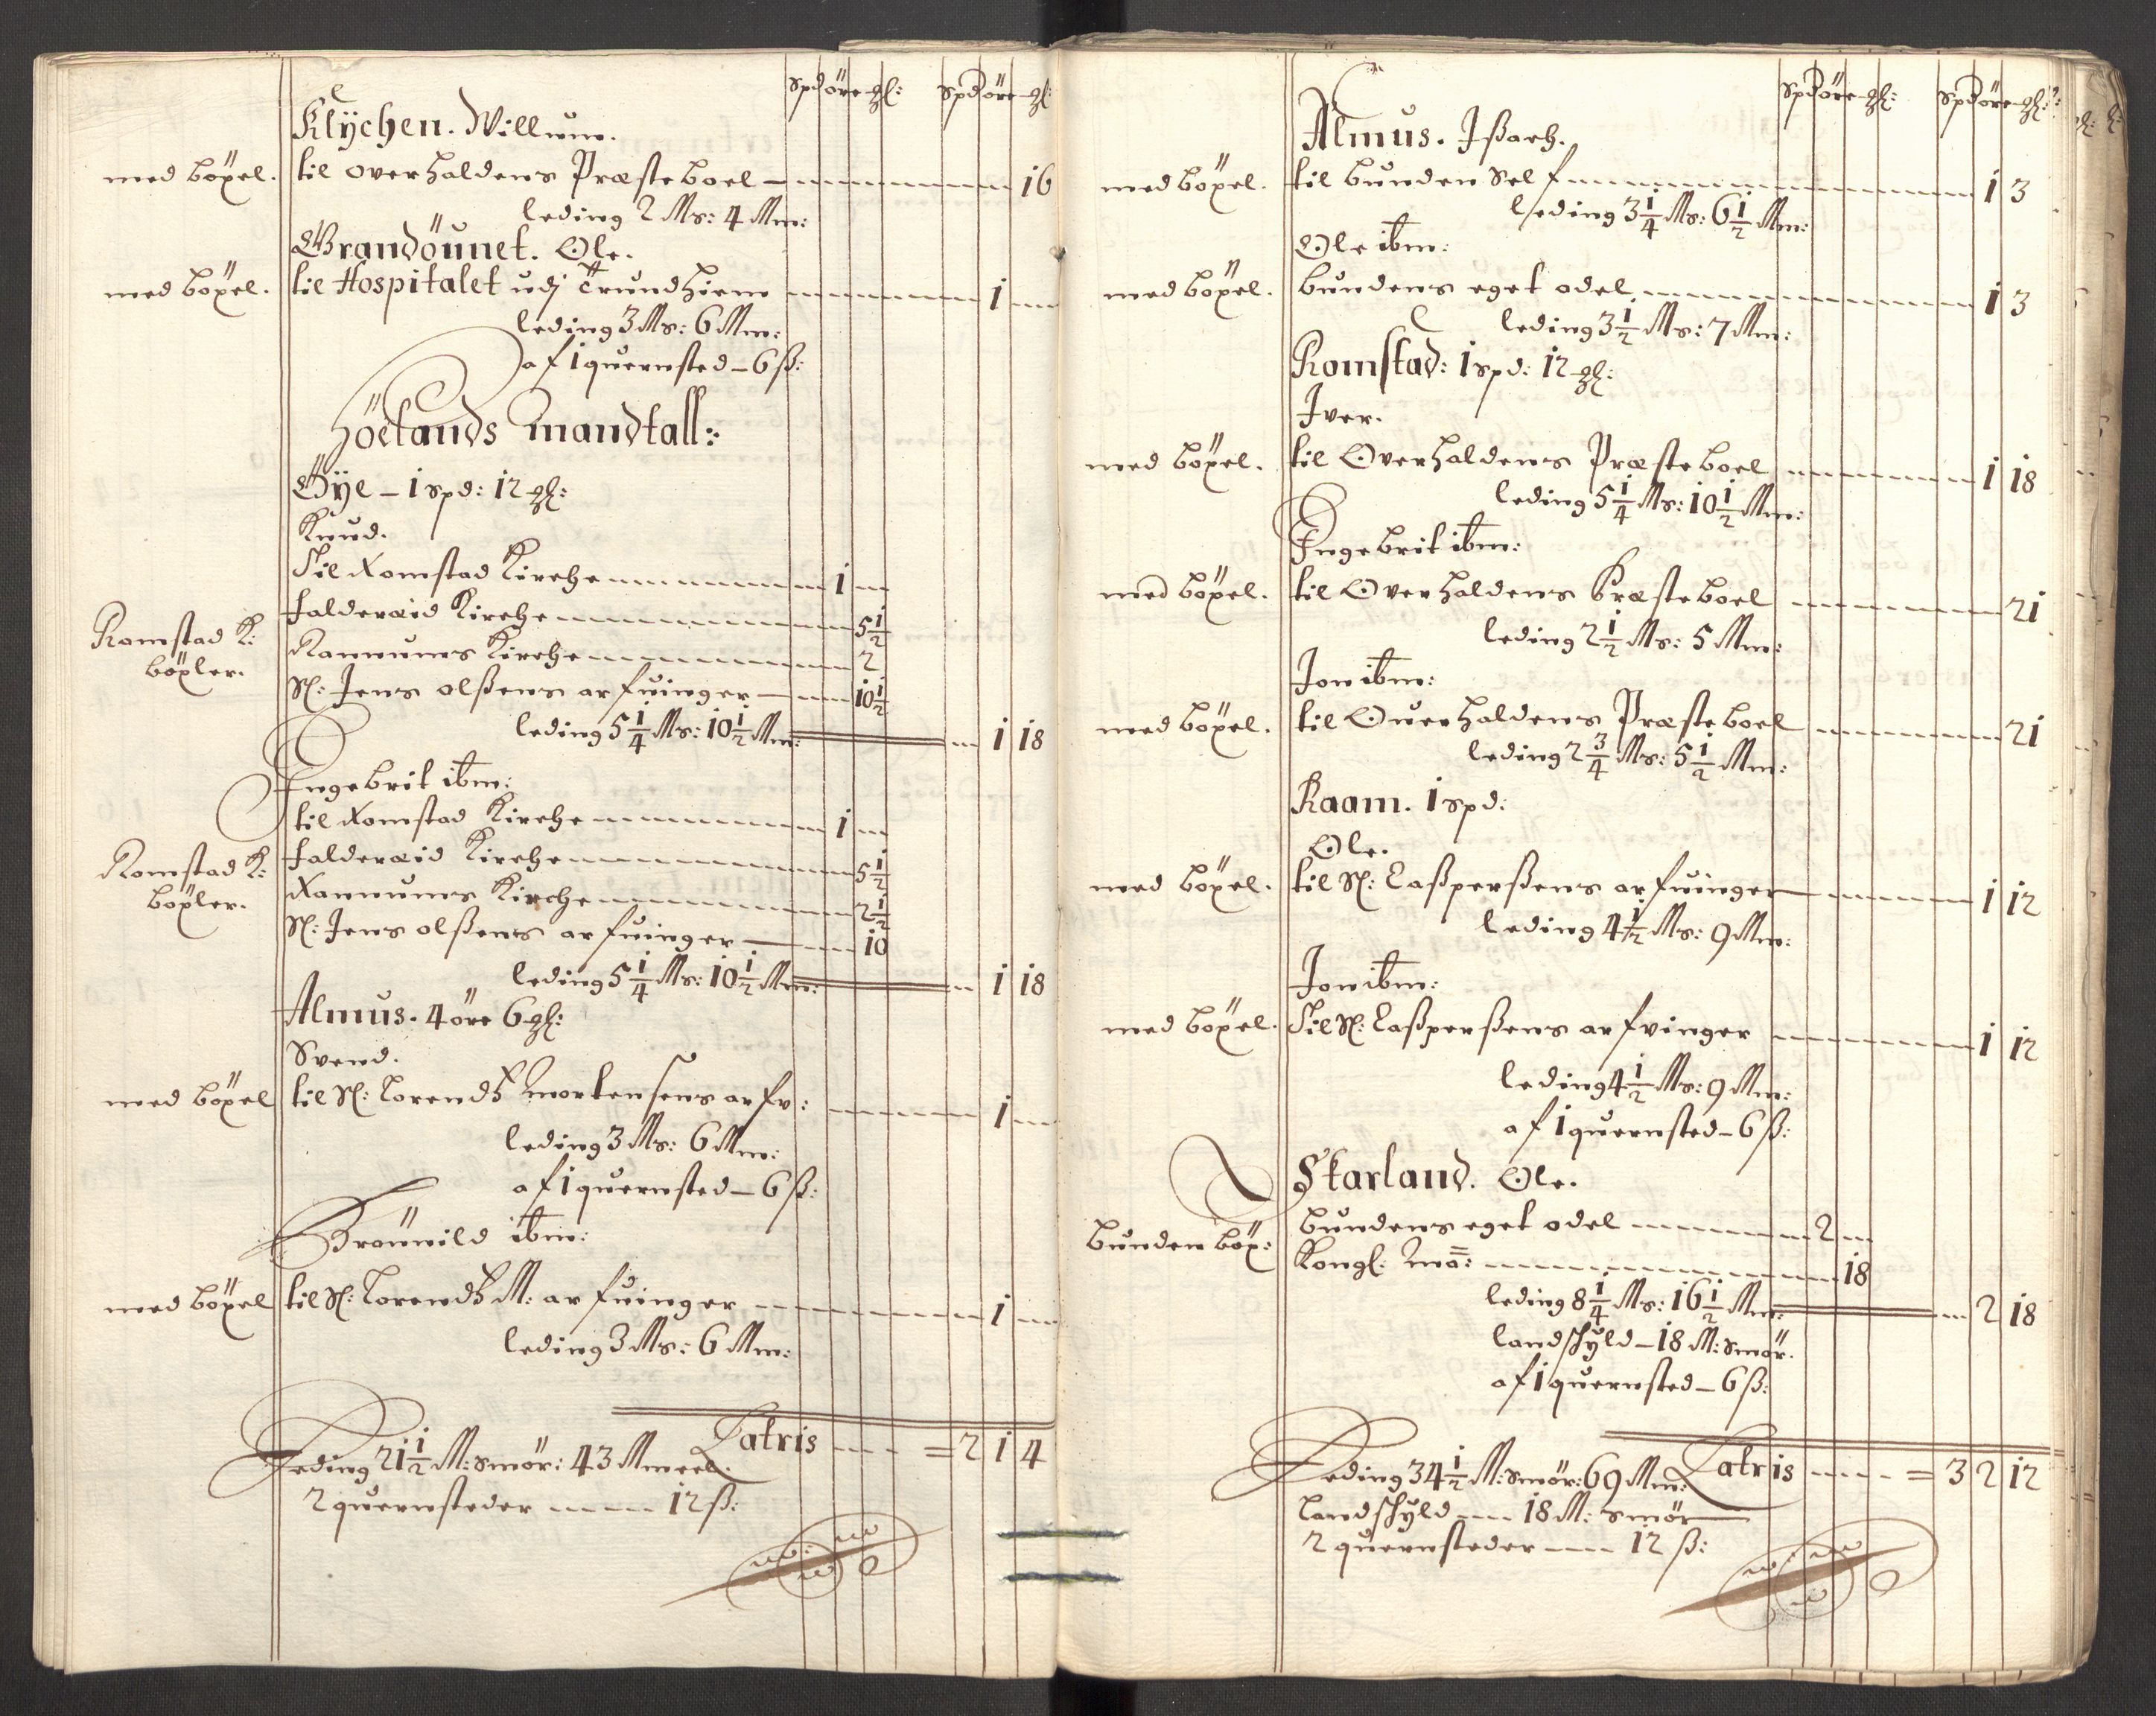 spd öre gl: spd öre gl:
Klÿchen. Willum.
med böxel. til Overhaldens Præsteboel 16
leding 2 Ms: 4 Mm:
Grandöunet. Ole.
med böxel. til Hospitalet udj Trundhiem 1
leding 3 Ms: 6 Mm:
af 1 quernsted – 6 ß:
Höelands Mandtall:
Öÿe – 1 spd: 12 gl:
Knud.
Til Romstad Kirche 1
Romstad K: böxler. falderæid Kirche 5 1/2
Rannums Kirche 2
Sl: Jens olßens arfuinger 10 1/2
leding 5 1/4 Ms: 10 1/2 Mm: 1 18
Ingebrit ibm:
til Romstad Kirche 1
Romstad K: böxler. falderæid Kirche 5 1/2
Rannums Kirche 2 1/2
Sl: Jens olßens arfuinger 10
leding 5 1/4 Ms: 10 1/2 Mm: 1 18
Almus. 4 öre 6 gl:
Svend.
med böxel til Sl: Lorendtz Mortensens arfv: 1
leding 3 Ms: 6 Mm:
af 1 quernsted – 6 ß:
Brönnild ibm:
med böxel til Sl: Lorendtz M: arfuinger 1
leding 3 Ms: 6 Mm:
Latris = 2 1 4
Leding 21 1/2 M: smör: 43 M meel.
2 quernsteder 12 ß:
spd öre gl: spd öre gl:
Almus. Ißach.
med böxel. til bunden Self 1 3
leding 3 1/4 Ms: 6 1/2 Mm:
Ole ibm:
med böxel. bundens eget odel 1 3
leding 3 1/2 Ms: 7 Mm:
Romstad: 1 spd: 12 gl:
Iver.
med böxel. til Overhaldens Præsteboel 1 18
leding 5 1/4 Ms: 10 1/2 Mm:
Ingebrit ibm:
med böxel. til Overhaldens Præsteboel 21
leding 2 1/2 Ms: 5 Mm:
Jon ibm:
med böxel. til Ouerhaldens Præsteboel 21
leding 2 3/4 Ms: 5 1/2 Mm:
Raam. 1 spd:
Ole.
med böxel. til Sl: Caßperßens arfuinger 1 12
leding 4 1/2 Ms: 9 Mm:
Jon ibm:
med böxel. Til Sl: Caßperßens arfvinger 1 12
leding 4 1/2 Ms: 9 Mm:
af 1 quernsted – 6 ß:
Skarland. Ole.
bunden böx: bundens eget odel 2
Kongl: Ma: 18
leding 8 1/4 Ms: 16 1/2 Mm: 2 18
landschyld – 18 M: smör.
af 1 quernsted – 6 ß:
Latris = 3 2 12
Leding 34 1/2 M: smör: 69 Mm:
Landschyld 18 M: smör
2 quernsteder 12 ß: